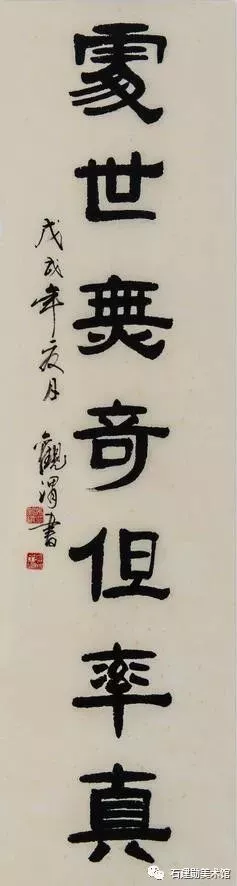 處世無奇但率真
戊戌年夏月 觀渭書
石理勛美术馆